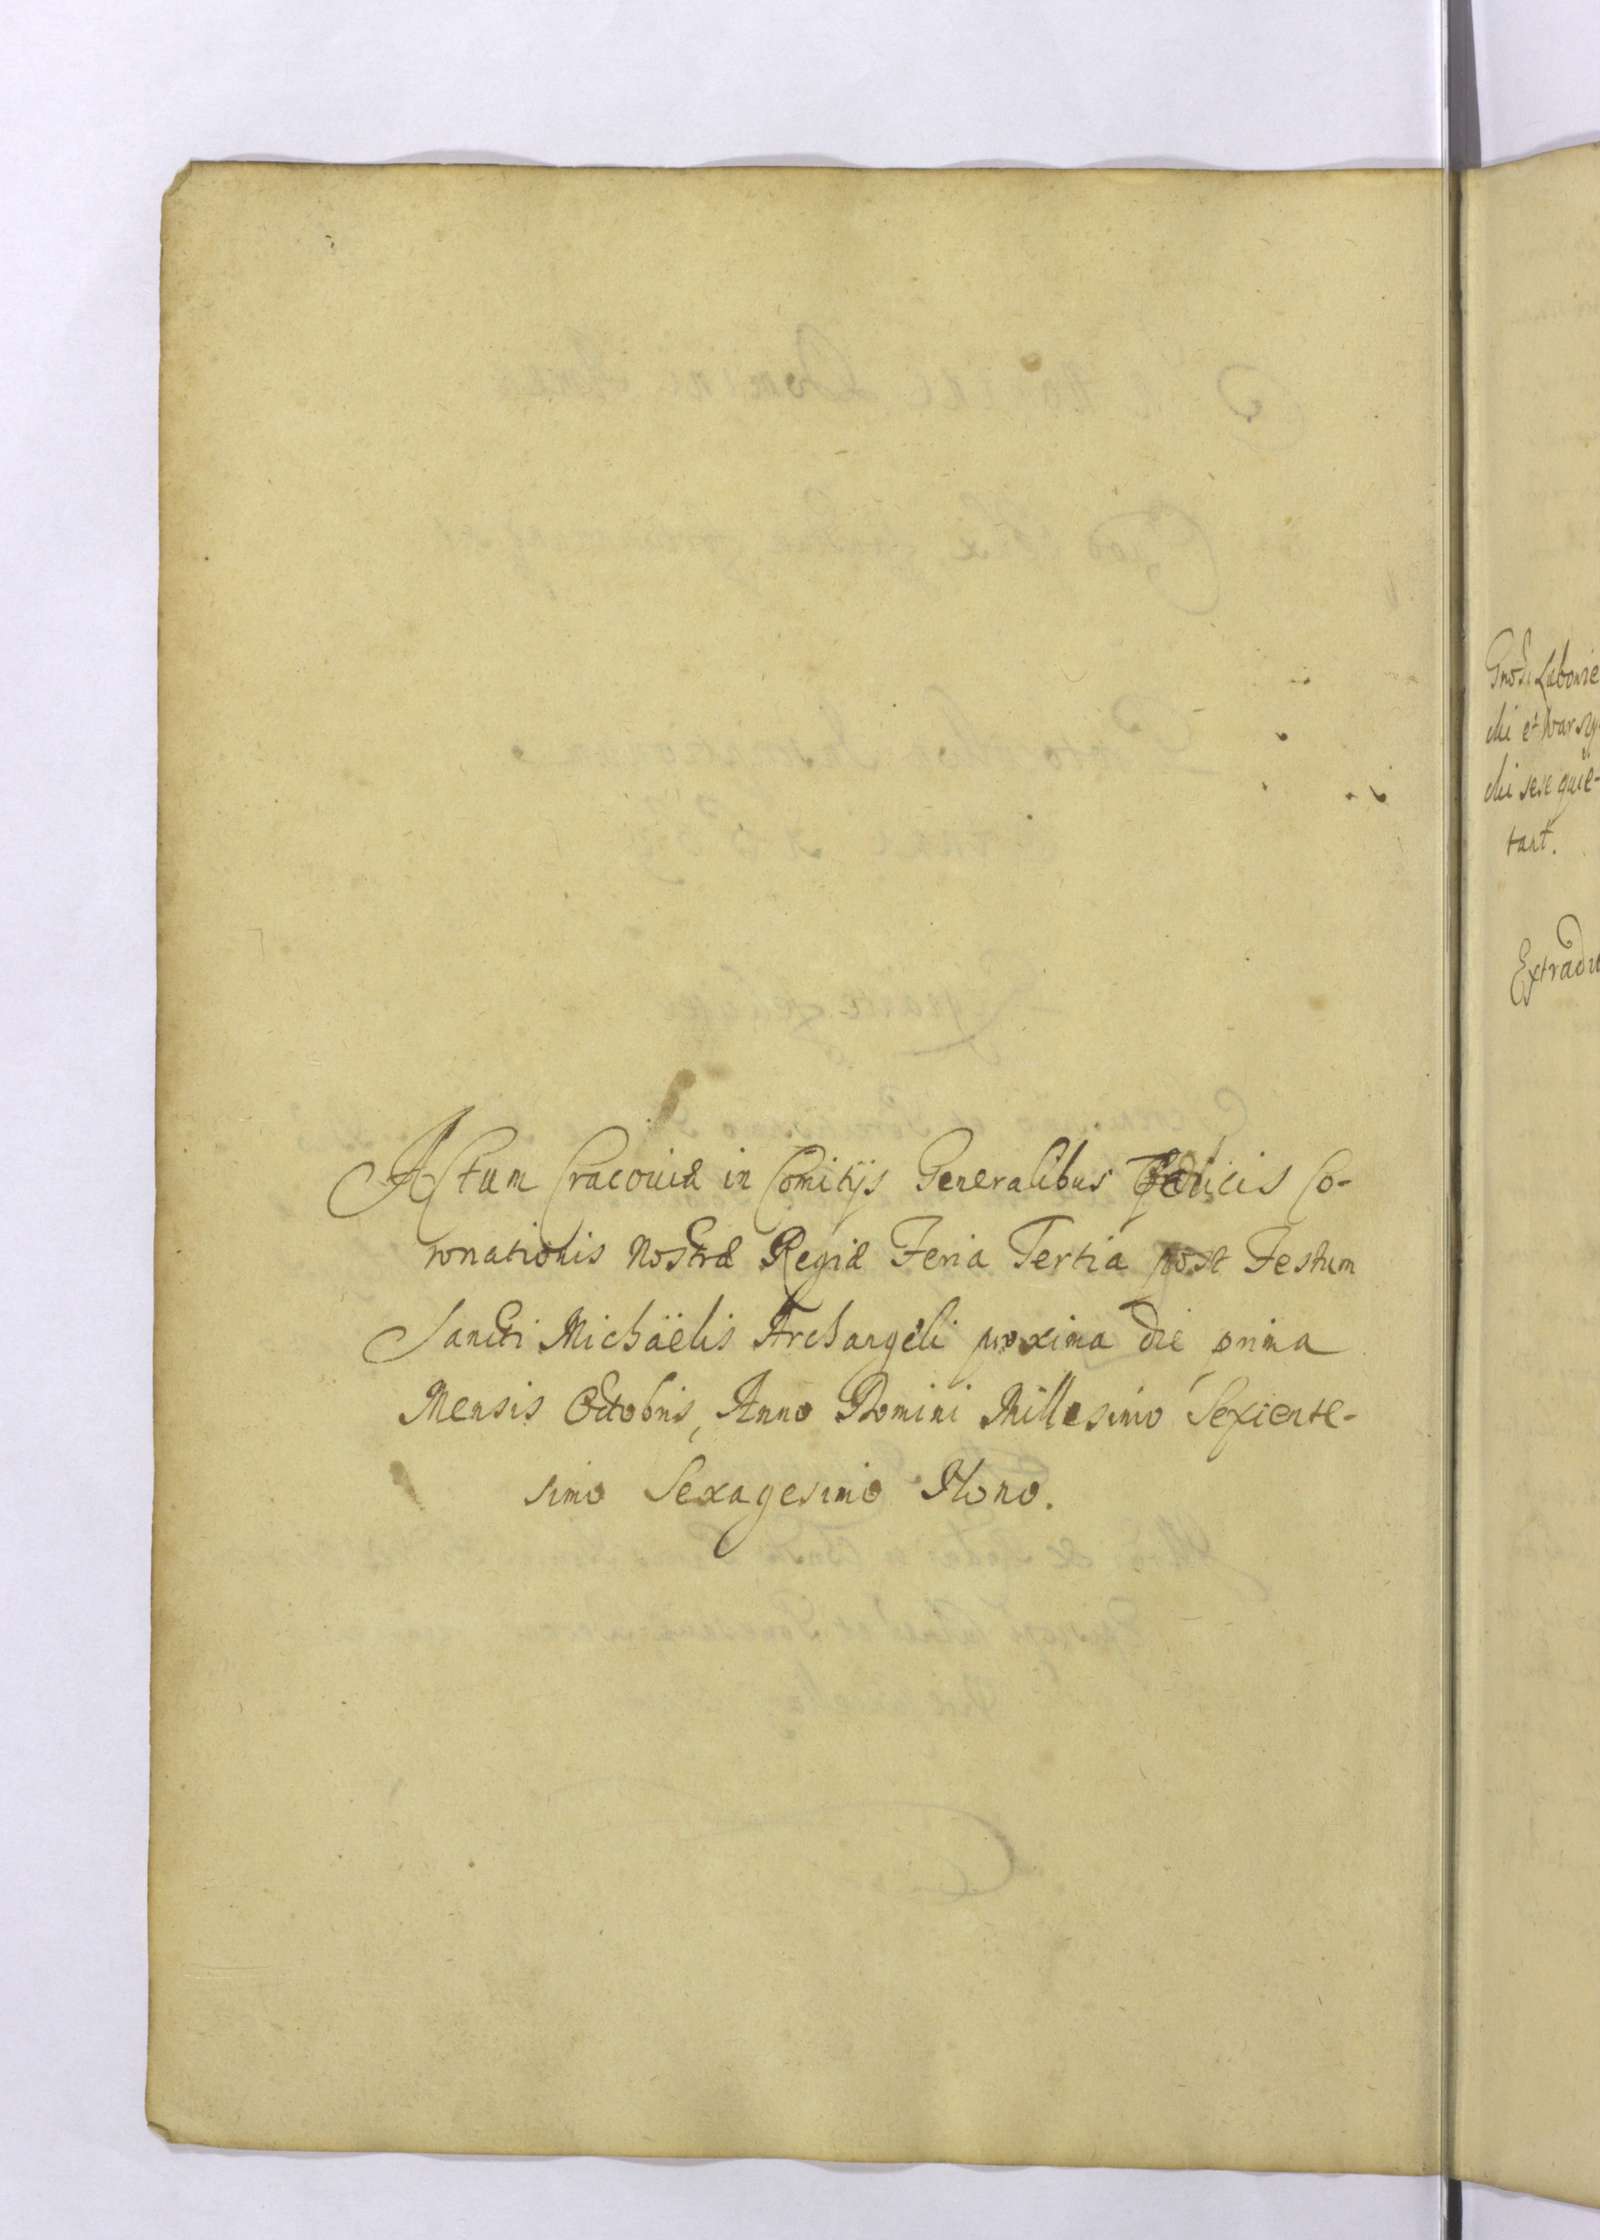 Actum Cracoviæ in Comitijs Generalibus Felicis Co-
ronationis Nostræ Regiæ Feria Tertia post Festum
Sancti Michäelis Archangeli proxima die prima
Mensis Octobris, Anno Domini Millesimo Sexcente-
simo Sexagesimo Nono.
chi et Warszy-
chi sese quie-
tant.
Extradu